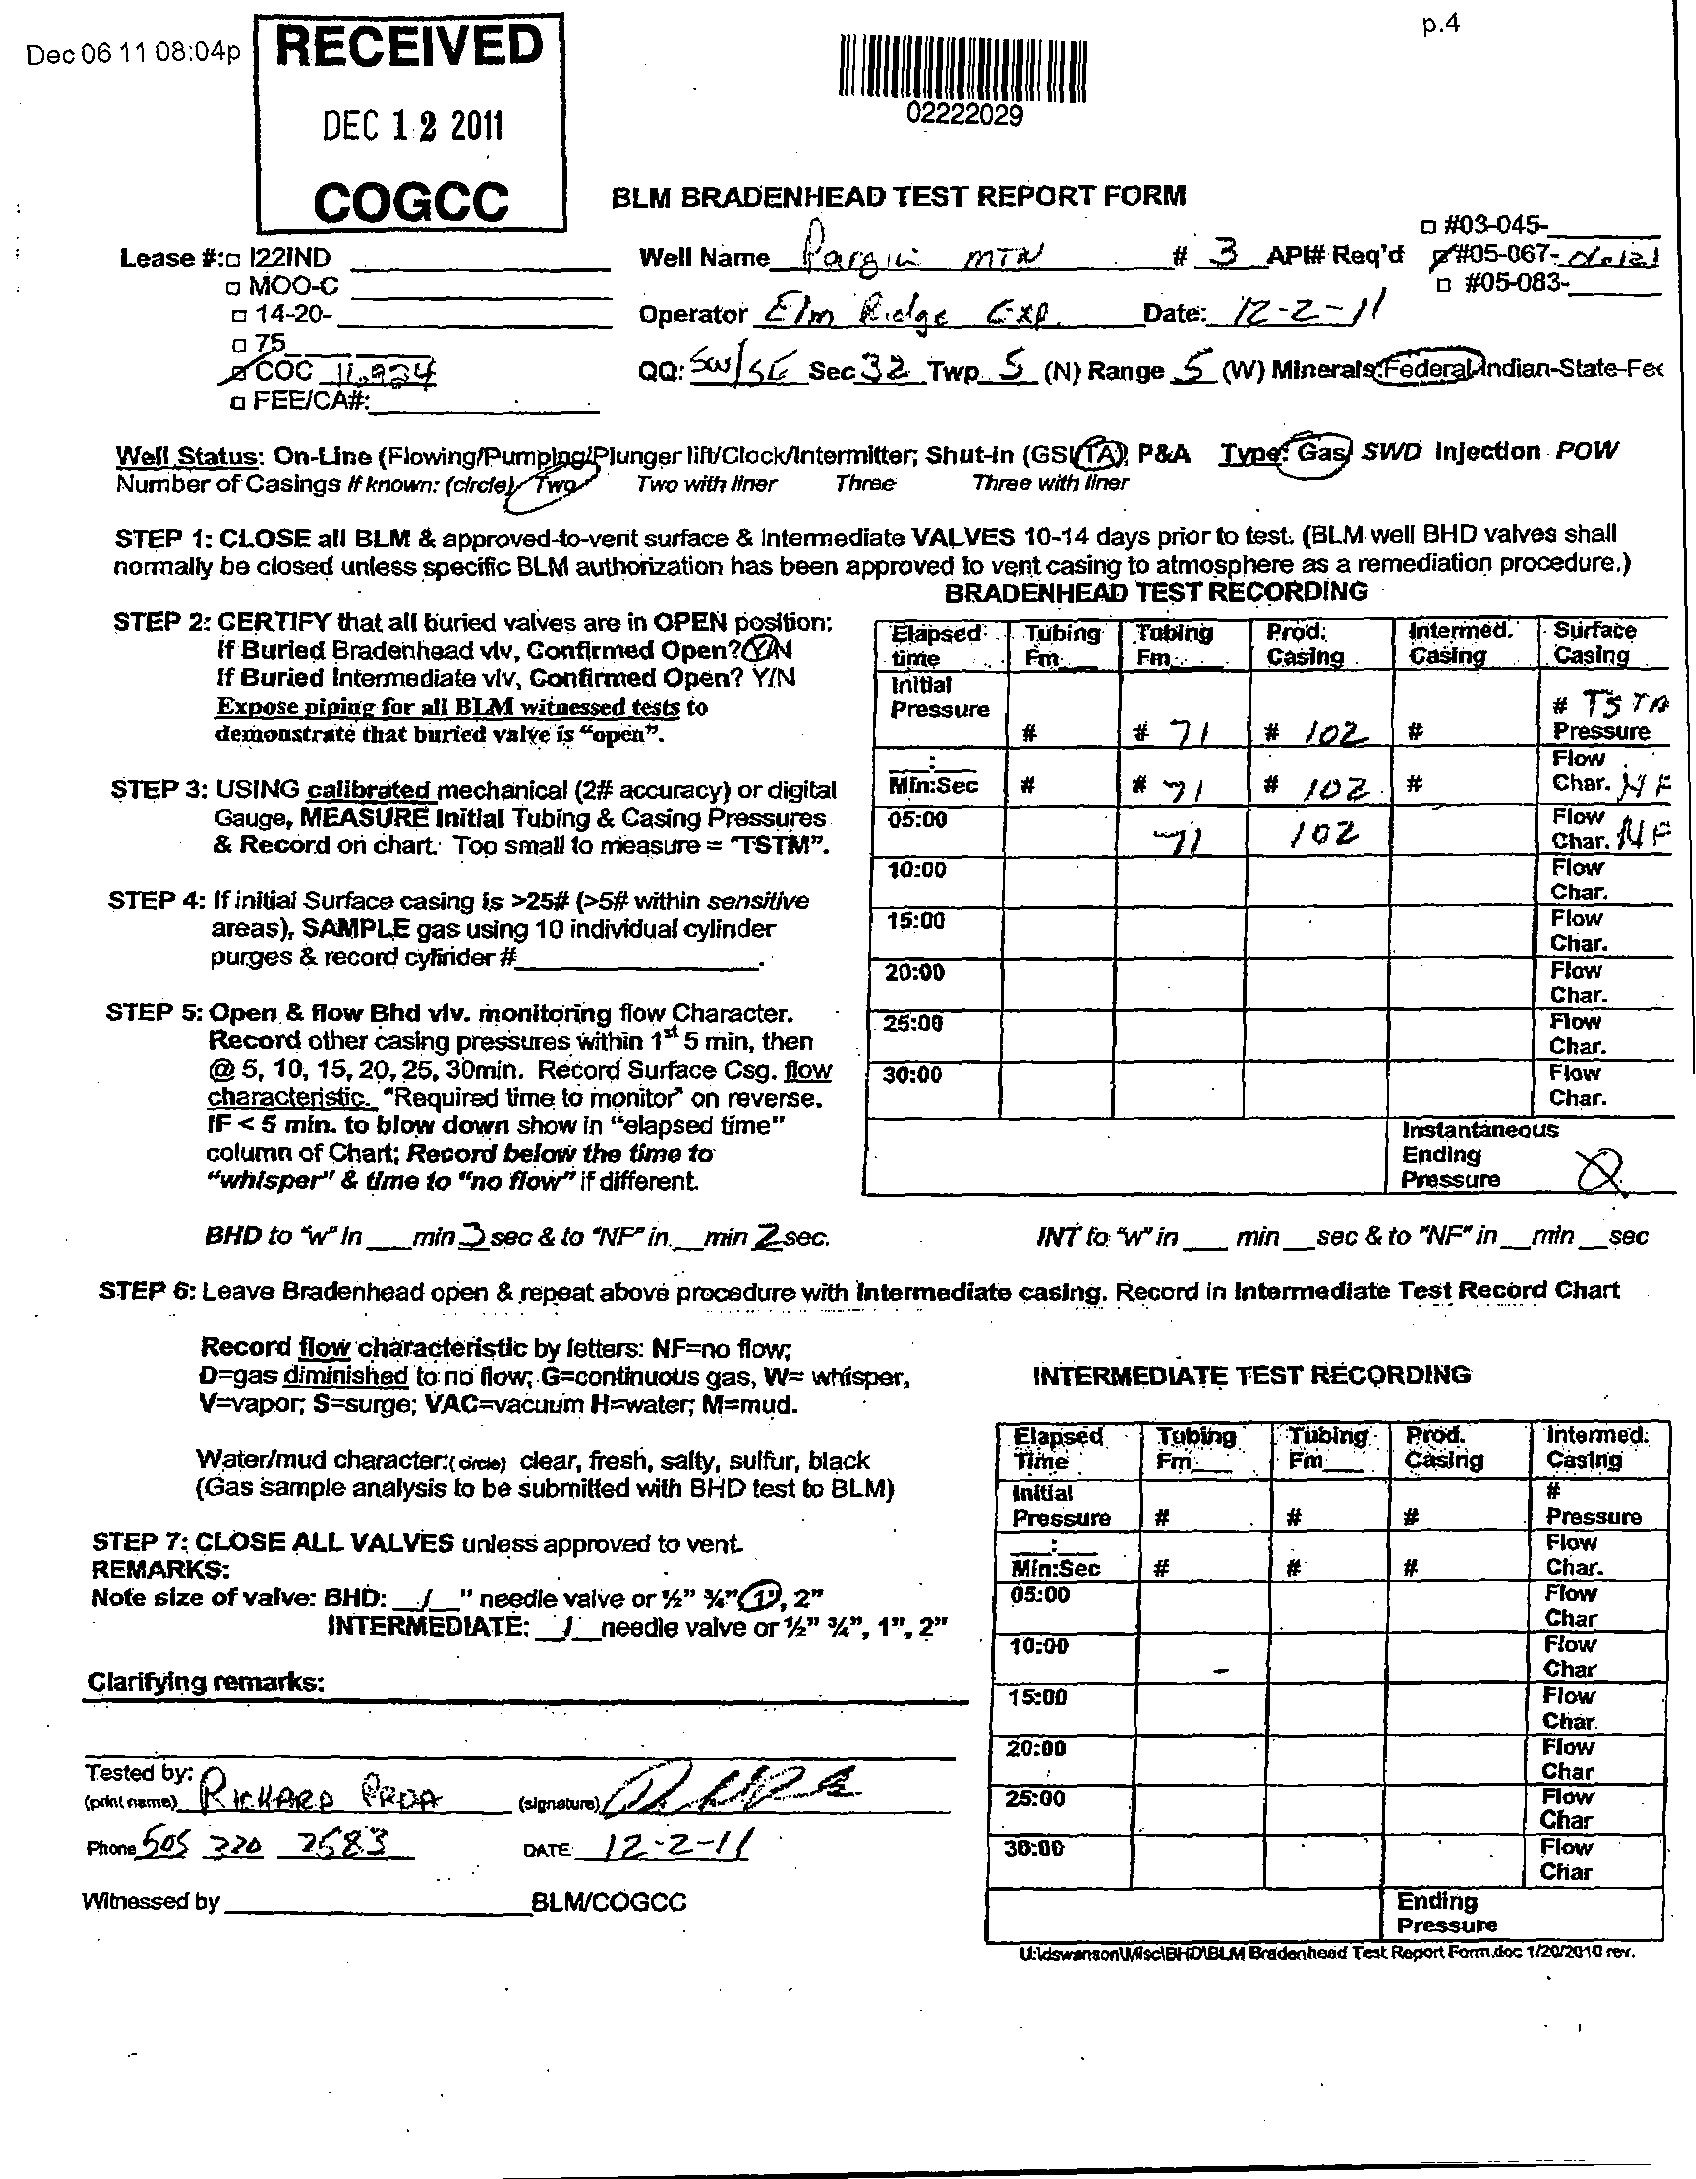 p.4
Dec 06 11 08:04p
RECEIVED
DEC 12 2011
COGCC
02222029
BLM BRADENHEAD TEST REPORT FORM
#03-045-
Lease #: I22IND Well Name Pargin MTN # 3 API# Req'd #05-067-
MOO-C #05-083-
14-20- Operator Elm Ridge Exp. Date: 12-2-11
75
COC QQ: SW/SE Sec 32 Twp 5 (N) Range 5 (W) Minerals: Federal-Indian-State-Fee
FEE/CA#:
Well Status: On-Line (Flowing/Pumping/Plunger lift/Clock/Intermitter; Shut-in (GSI/TA) P&A Type: Gas SWD Injection POW
Number of Casings If known: (circle) Two Two with liner Three Three with liner
STEP 1: CLOSE all BLM & approved-to-vent surface & Intermediate VALVES 10-14 days prior to test. (BLM well BHD valves shall
normally be closed unless specific BLM authorization has been approved to vent casing to atmosphere as a remediation procedure.)
STEP 2: CERTIFY that all buried valves are in OPEN position:
If Buried Bradenhead vlv, Confirmed Open? Y/N
If Buried Intermediate vlv, Confirmed Open? Y/N
Expose piping for all BLM witnessed tests to
demonstrate that buried valve is "open".
STEP 3: USING calibrated mechanical (2# accuracy) or digital
Gauge, MEASURE Initial Tubing & Casing Pressures
& Record on chart. Too small to measure = "TSTM".
STEP 4: If initial Surface casing is >25# (>5# within sensitive
areas), SAMPLE gas using 10 individual cylinder
purges & record cylinder #.
STEP 5: Open & flow Bhd vlv. monitoring flow Character.
Record other casing pressures within 1st 5 min, then
@ 5, 10, 15, 20, 25, 30min. Record Surface Csg. flow
characteristic. "Required time to monitor" on reverse.
IF < 5 min. to blow down show in "elapsed time"
column of Chart; Record below the time to
"whisper" & time to "no flow" if different.
BRADENHEAD TEST RECORDING
Elapsed time Tubing Fm Tubing Fm Prod. Casing Intermed. Casing Surface Casing
Initial Pressure # # 71 # 102 # # Pressure
Min:Sec # # 71 # 102 # Flow Char. NF
05:00 71 102 Flow Char. NF
10:00 Flow Char.
15:00 Flow Char.
20:00 Flow Char.
25:00 Flow Char.
30:00 Flow Char.
Instantaneous
Ending
Pressure
BHD to "w" in min 3 sec & to "NF" in min 2 sec. INT to "w" in min sec & to "NF" in min sec
STEP 6: Leave Bradenhead open & repeat above procedure with Intermediate casing. Record in Intermediate Test Record Chart
Record flow characteristic by letters: NF=no flow;
D=gas diminished to no flow; G=continuous gas, W= whisper,
V=vapor; S=surge; VAC=vacuum H=water; M=mud.
Water/mud character:(circle) clear, fresh, salty, sulfur, black
(Gas sample analysis to be submitted with BHD test to BLM)
STEP 7: CLOSE ALL VALVES unless approved to vent.
REMARKS:
Note size of valve: BHD: / " needle valve or ½" ¾" 1", 2"
INTERMEDIATE: / needle valve or ½" ¾", 1", 2"
Clarifying remarks:
INTERMEDIATE TEST RECORDING
Elapsed Time Tubing Fm Tubing Fm Prod. Casing Intermed. Casing
Initial Pressure # # # # Pressure
Min:Sec # # # Flow Char.
05:00 Flow Char
10:00 Flow Char
15:00 Flow Char.
20:00 Flow Char
25:00 Flow Char
30:00 Flow Char
Ending
Pressure
Tested by:
(print name) RICHARD (signature)
Phone 505 320 2583 DATE 12-2-11
Witnessed by BLM/COGCC
U:\dswanson\Misc\BHD\BLM Bradenhead Test Report Form.doc 1/20/2010 rev.